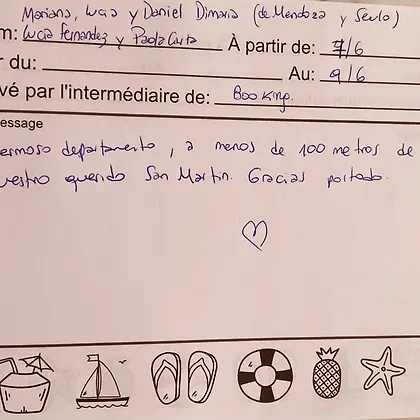 Mariana, Lucia y Daniel Dimaria (de Mendoza y Seulo)
m: Lucia Fernandez y Paola Curto À partir de: 7/6
r du: Au: 9/6
vé par l'intermédiaire de: Booking.
essage
ermoso departamento, a menos de 100 metros de
uestro querido San Martin. Gracias por todo.